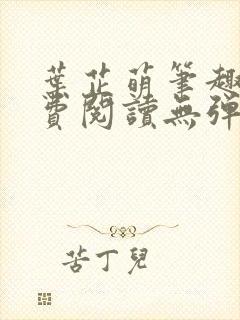 葉芷萌筆趣
費閱讀無彈
苦丁兒